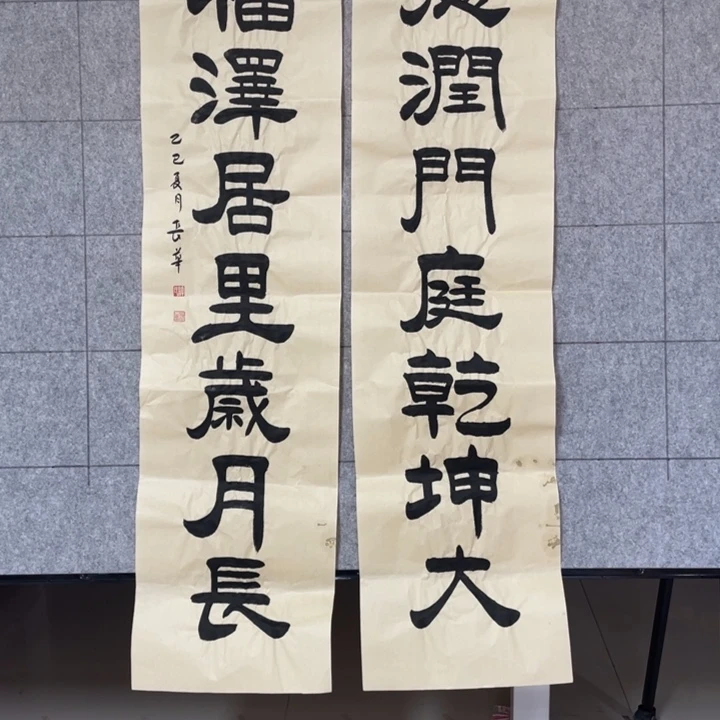 德潤門庭乾坤大
福澤居里歲月長
乙巳夏月長華